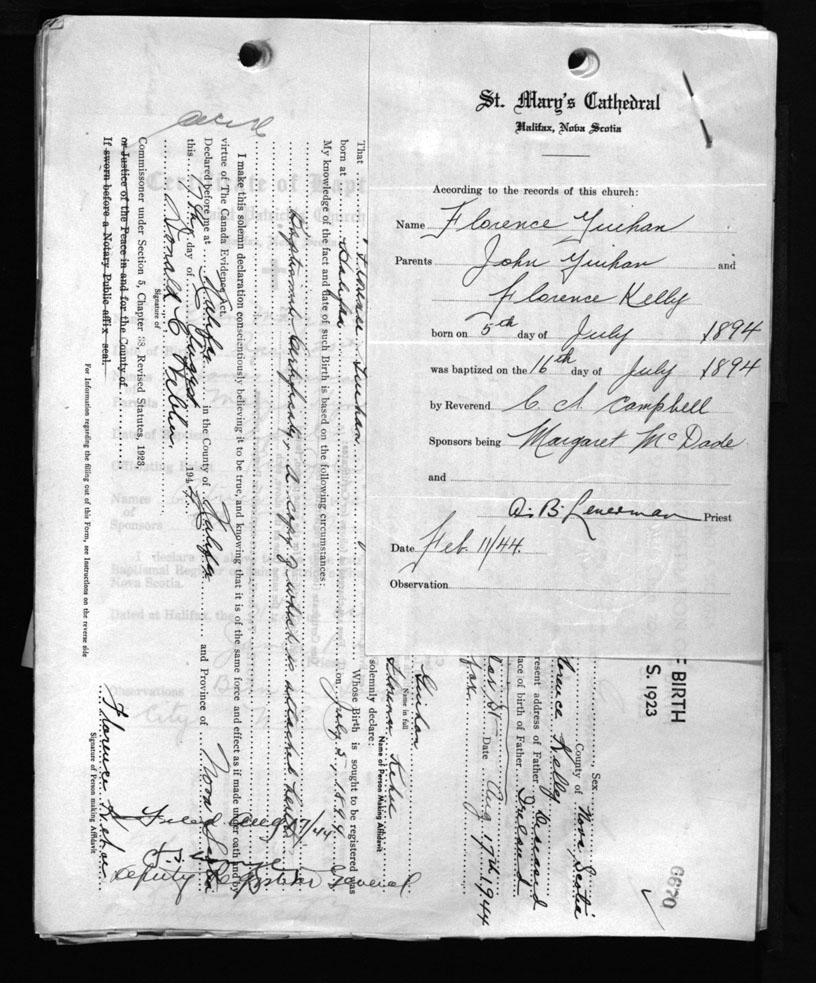 St. Mary's Cathedral
Halifax, Nova Scotia
According to the records of this church:
Name Florence Guihan
Parents John Guihan and
Florence Kelly
born on 5th day of July 1894
was baptized on the 16th day of July 1894
by Reverend C A Campbell
Sponsors being Margaret McDade
and
Priest
Date Feb. 11/44.
Observation
F BIRTH
S. 1923
6670
Sex
County of Nova Scotia
Florence Kelly Deceased
resent address of Father
lace of birth of Father Ireland
Date Aug 17th 1944
fax.
Guihan
Name in full
Florence
Name of Person Making Affidavit
solemnly declare:
That Florence Guihan Whose Birth is sought to be registered was
born at Halifax on July 5, 1894
My knowledge of the fact and date of such Birth is based on the following circumstances:
Baptismal Certificate, a copy of which is attached hereto
I make this solemn declaration conscientiously believing it to be true, and knowing that it is of the same force and effect as if made under oath and by
virtue of The Canada Evidence Act.
Declared before me at Halifax in the County of Halifax and Province of Nova Scotia
this 17th day of August 1944
Donald C
Signature of
Commissioner under Section 5, Chapter 38, Revised Statutes, 1923,
or Justice of the Peace in and for the County of
If sworn before a Notary Public affix seal.
Florence
Signature of Person making Affidavit
For Information regarding the filling out of this Form, see Instructions on the reverse side
Filed Aug 17/44
Deputy Registrar General